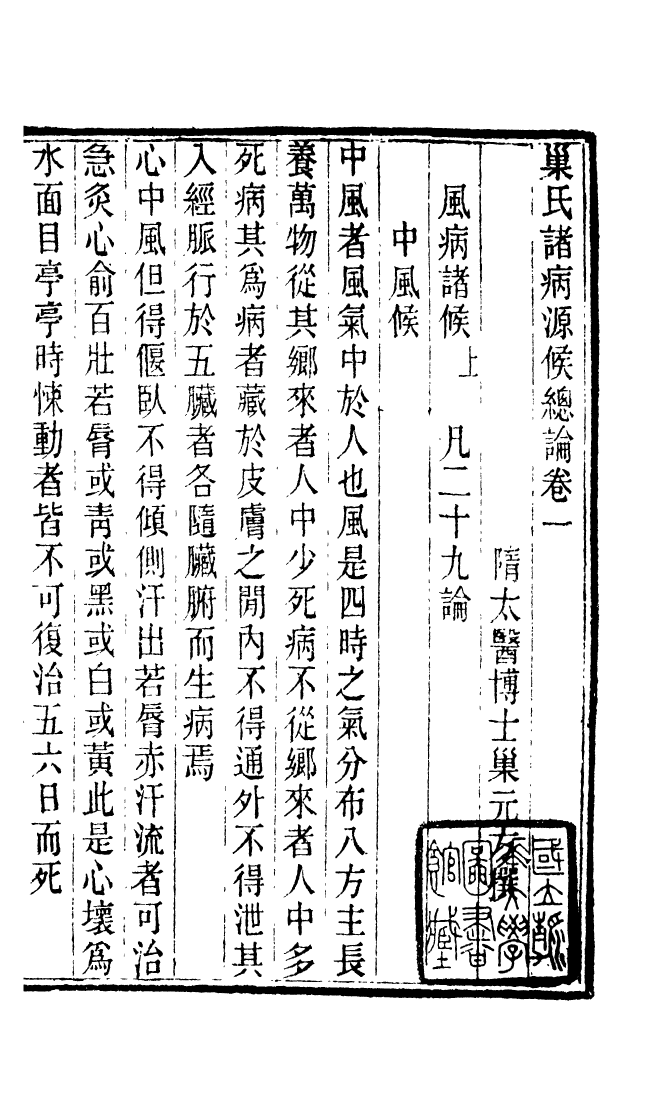 巢氏諸病源候總論卷一
隋太醫博士巢元方撰
風病諸候上　凡二十九論
中風候
中風者風氣中於人也風是四時之氣分布八方主長
養萬物從其鄉來者人中少死病不從鄉來者人中多
死病其爲病者藏於皮膚之閒內不得通外不得泄其
入經脈行於五臟者各隨臟腑而生病焉
心中風但得偃臥不得傾側汗出若脣赤汗流者可治
急灸心俞百壯若脣或靑或黑或白或黃此是心壞爲
水面目亭亭時悚動者皆不可復治五六日而死
國立
大學
圖書
館藏